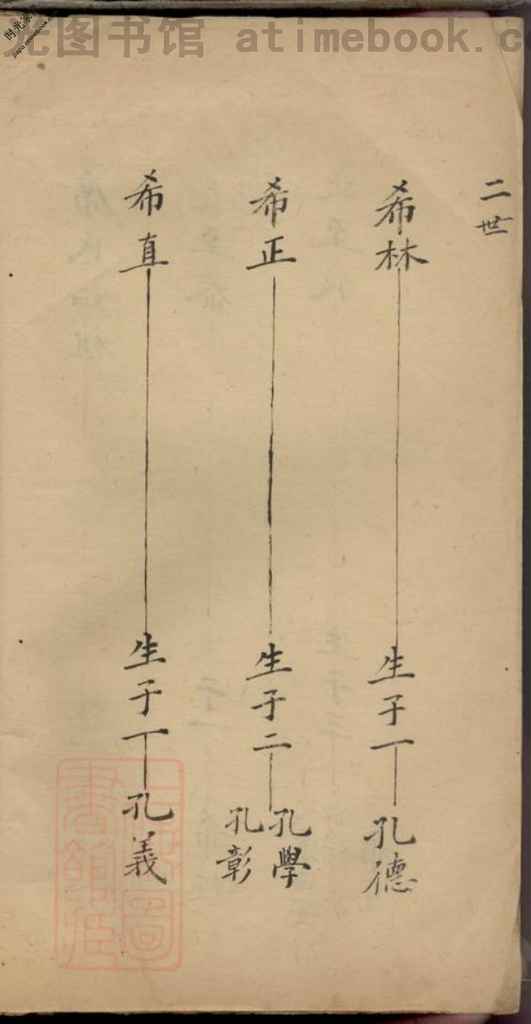 光图书馆 atimebook.c
时光图
二世
希林
生子一
孔德
希正
生子二
孔學
孔彰
希直
生子一
孔義